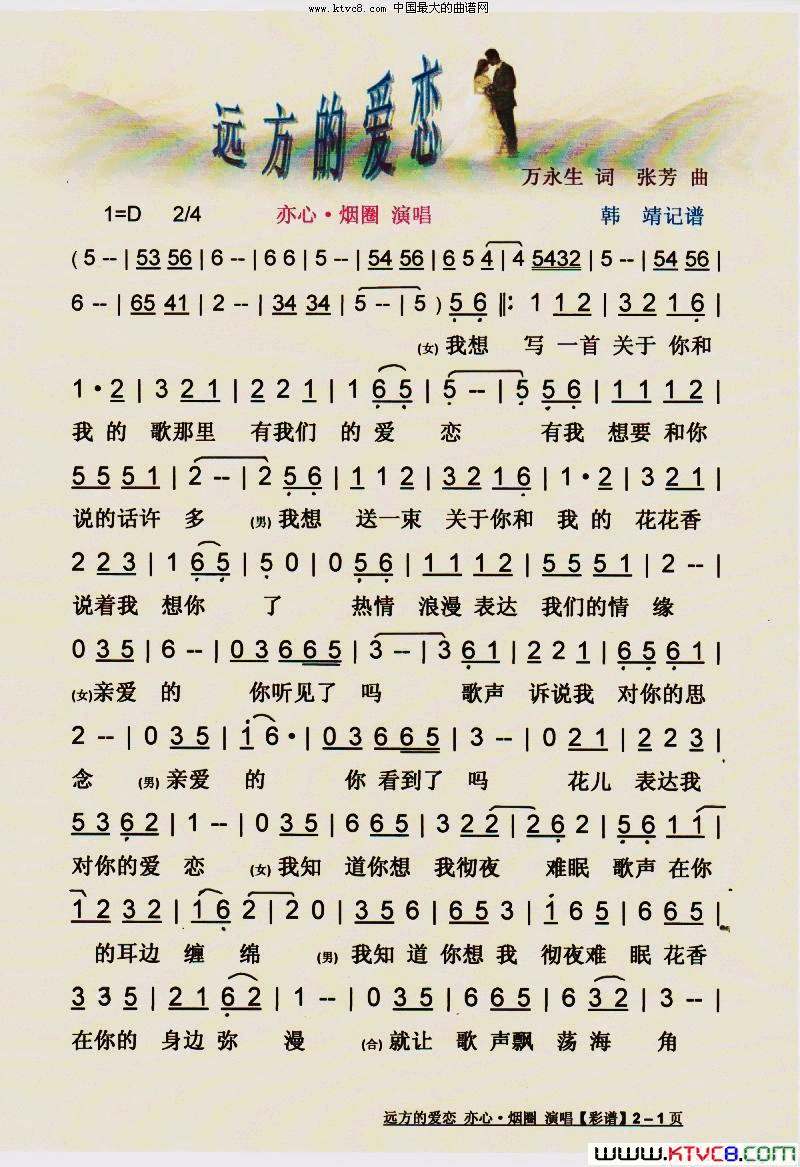 www.ktvc8.com 中国最大的曲谱网
远方的爱恋
万永生 词 张芳 曲
1=D 2/4 亦心·烟圈 演唱 韩 靖记谱
( 5 -- | 53 56 | 6 -- | 6 6 | 5 -- | 54 56 | 6 5 4 | 4 5432 | 5 -- | 54 56 |
6 -- | 65 41 | 2 -- | 34 34 | 5 -- | 5 ) 5 6 ‖: 1 1 2 | 3 2 1 6 |
(女) 我想 写 一首 关于 你和
1 · 2 | 3 2 1 | 2 2 1 | 1 6 5 | 5 -- | 5 5 6 | 1 1 1 2 |
我 的 歌那里 有我们 的 爱 恋 有我 想要 和你
5 5 5 1 | 2 -- | 2 5 6 | 1 1 2 | 3 2 1 6 | 1 · 2 | 3 2 1 |
说的话许 多 (男) 我想 送一束 关于你和 我 的 花花香
2 2 3 | 1 6 5 | 5 0 | 0 5 6 | 1 1 1 2 | 5 5 5 1 | 2 -- |
说着我 想你 了 热情 浪漫 表达 我们的情 缘
0 3 5 | 6 -- | 0 3 6 6 5 | 3 -- | 3 6 1 | 2 2 1 | 6 5 6 1 |
(女)亲爱 的 你听见了 吗 歌声 诉说我 对你的思
2 -- | 0 3 5 | 1 6 · | 0 3 6 6 5 | 3 -- | 0 2 1 | 2 2 3 |
念 (男) 亲爱 的 你 看到了 吗 花儿 表达我
5 3 6 2 | 1 -- | 0 3 5 | 6 6 5 | 3 2 2 | 2 6 2 | 5 6 1 1 |
对你的爱 恋 (女) 我知 道你想 我彻夜 难眠 歌声 在你
1 2 3 2 | 1 6 2 | 2 0 | 3 5 6 | 6 5 3 | 1 6 5 | 6 5 1 |
的耳边 缠 绵 (男) 我知 道 你想 我 彻夜难 眠 花香
3 3 5 | 2 1 6 2 | 1 -- | 0 3 5 | 6 6 5 | 6 3 2 | 3 -- |
在你的 身边 弥 漫 (合) 就让 歌 声飘 荡 海 角
远方的爱恋 亦心·烟圈 演唱【彩谱】2-1页
WWW.KTVC8.COM